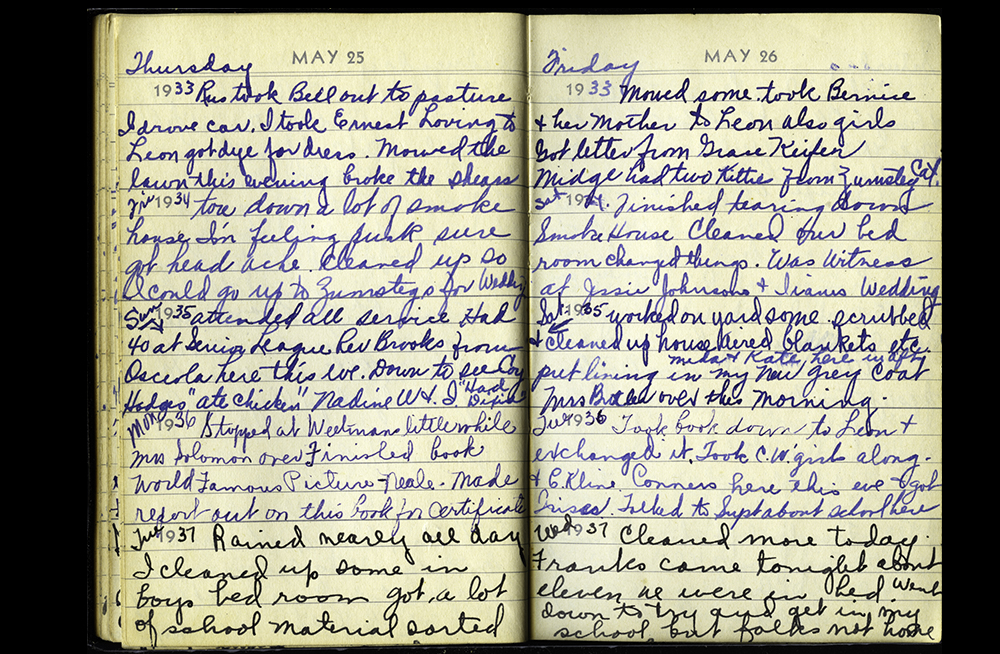 Thursday
MAY 25
1933 Rus took Bell out to pasture
I drove car. I took Ernest Loving to
Leon got dye for dress. Mowed the
lawn this evening broke the shears
Fri 1934 tore down a lot of smoke
house I'm feeling punk sure
got head ache. Cleaned up so
I could go up to Zumstegs for Wedding
Sun 1935 attended all service Had
40 at Senior League Rev Brooks from
Osceola here this eve. Down to see Coy
Hodges "ate chicken" Nadine W & I "Had
Mon 1936 Stopped at Weetmans little while
Mrs Solomon over Finished book
World Famous Picture - Neale. Made
report out on this book for certificate
Tue 1937 Rained nearly all day
I cleaned up some in
boys bed room got a lot
of school material sorted
Friday
MAY 26
1933 Mowed some. took Bernice
& her Mother to Leon also girls
Got letter from Grace Keifer
Midge had two Kitties from Zumsteg Cat.
Sat 1934 Finished tearing down
Smoke House Cleaned our bed
room changed things. Was Witness
at Jessie Johnsons & Wedding
1935 worked on yard some. scrubbed
& cleaned up house aired blankets etc.
Meda & Kate here in aft
put lining in my New grey Coat
Mrs over this Morning.
Tue 1936 Took book down to Leon &
exchanged it. Took C.W. girls along.
& E. Kline Conners here this eve & got
Irises. Talked to Supt about school here
Wed 1937 Cleaned more today.
Franks came tonight about
eleven we were in bed Went
down to try and get in my
school but folks not home